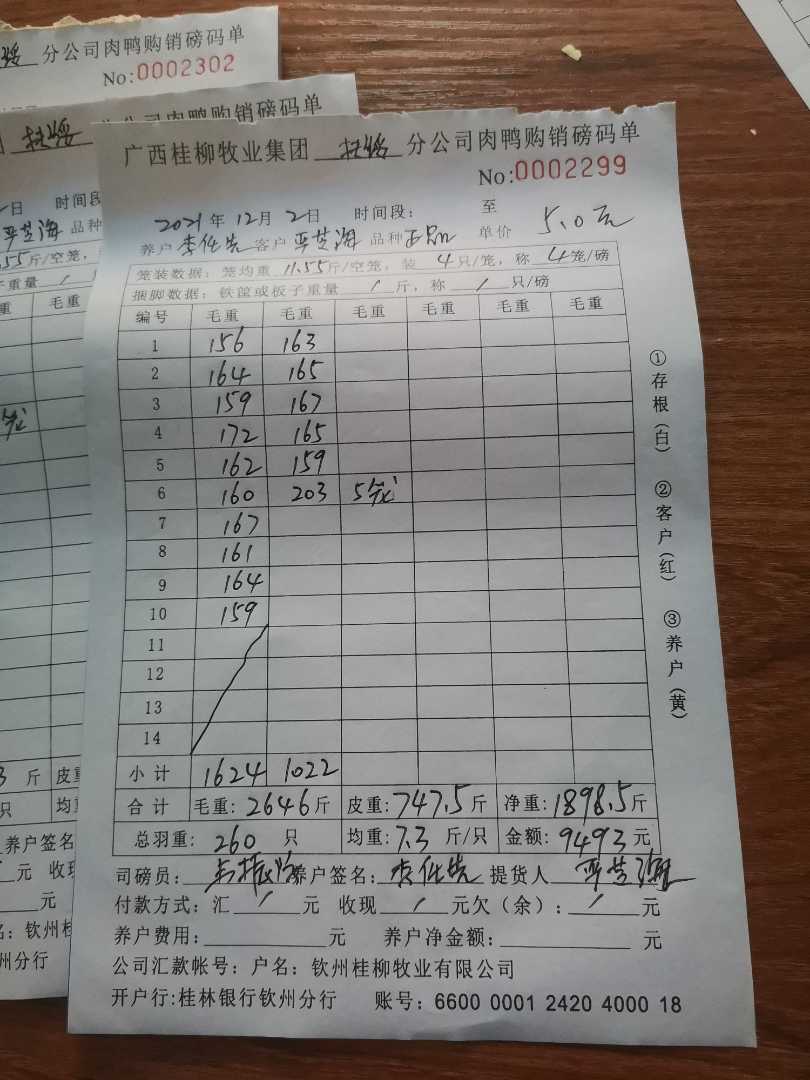 分公司肉鸭购销磅码单
No:0002302
扶绥 分公司肉鸭购销磅码单
广西桂柳牧业集团 扶绥 分公司肉鸭购销磅码单
No:0002299
2021年12月2日 时间段: 至
养户 李任先 客户 严芝海 品种 正品 单价 5.0元
笼装数据: 笼均重 11.55斤/空笼, 装 4只/笼, 称 4笼/磅
捆脚数据: 铁筐或板子重量 / 斤, 称 / 只/磅
编号 毛重 毛重 毛重 毛重 毛重 毛重
1 156 163
2 164 165
3 159 167
4 172 165
5 162 159
6 160 203 5笼
7 167
8 161
9 164
10 159
11
12
13
14
小计 1624 1022
合计 毛重: 2646斤 皮重: 747.5斤 净重: 1898.5斤
总羽重: 260 只 均重: 7.3 斤/只 金额: 9493元
司磅员: 养户签名: 李任先 提货人 严芝海
付款方式: 汇 / 元 收现 / 元欠(余): / 元
养户费用: 元 养户净金额: 元
公司汇款帐号: 户名: 钦州桂柳牧业有限公司
开户行:桂林银行钦州分行 账号: 6600 0001 2420 4000 18
①存根(白) ②客户(红) ③养户(黄)